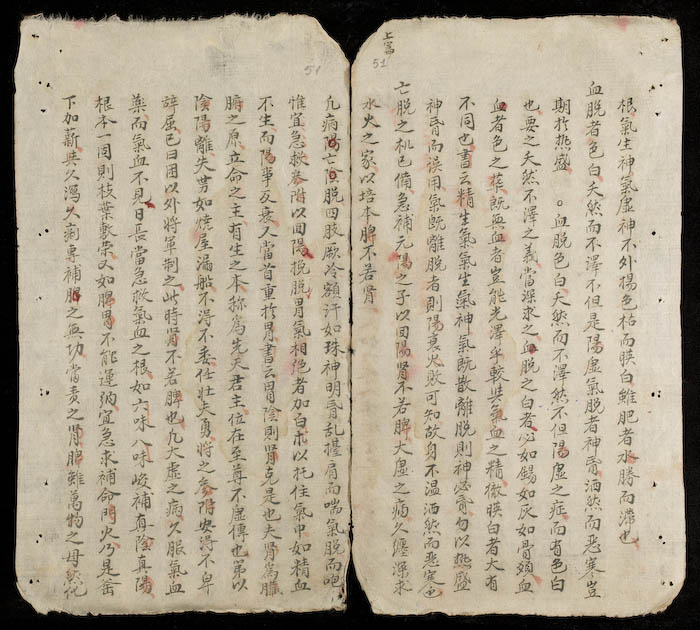 上富
51
根氣生神氣虛神不外揚色枯而䀹白雖肥者水勝而濃也
血脫者色白夭然而不澤不但是陽虛氣脫者神昏洒然而惡寒豈
期於熱盛 ○血脫色白夭然而不澤然不但陽虛之症而有色白
也要之夭然不澤之義當深求之血脫之白者必如錫如灰如骨頭血
血者色之華既無血者豈能光澤乎較與氣血之精徹䀹白者大有
不同也書云精生氣氣生氣神氣既散離脫則神必昏勿以熱盛
神昏而误用氣既離脫者則陽衰火敗可知故身不溫洒然而惡寒
亡脫之机已備急補元陽之子以回陽腎不若脾大虛之病久纏深求
水火之家以培本脾不若腎
51
凡病陽亡陰脫四肢厥冷額汗如珠神明昏亂擡肩而喘氣脫而
惟宜急救參附以回陽挽脫胃氣相絕者加白朮以托住氣中如精血
不生而陽事反衰人當首重於腎書云胃陰則腎克是也夫腎為臟
腑之原立命之主有生之本称為先天君主位在至尊不虛傳也第以
陰陽離失勢如燒屋漏船不淂不委任壮夫勇將之參附安淂不卑
辞屈已日困以外將軍制之此時腎不若脾也凡大虛之病久服氣血
藥而氣血不見日長當急救氣血之根如六味八味峻補真陰真陽
根本一固則枝葉敷榮又如脾胃不能運納宜急求補命門火乃是釜
下加薪其久瀉久痢專補脾之無功當责之腎脾雖萬物之母然化